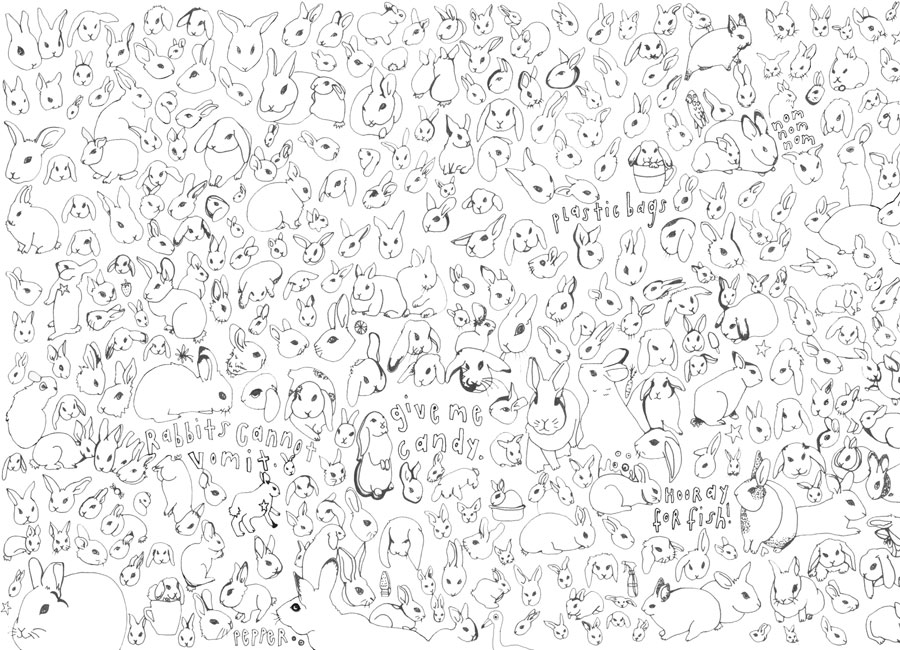 nom
nom
nom
plastic bags
give me
candy.
Rabbits cannot
vomit.
HOORAY
for fish!
PEPPER